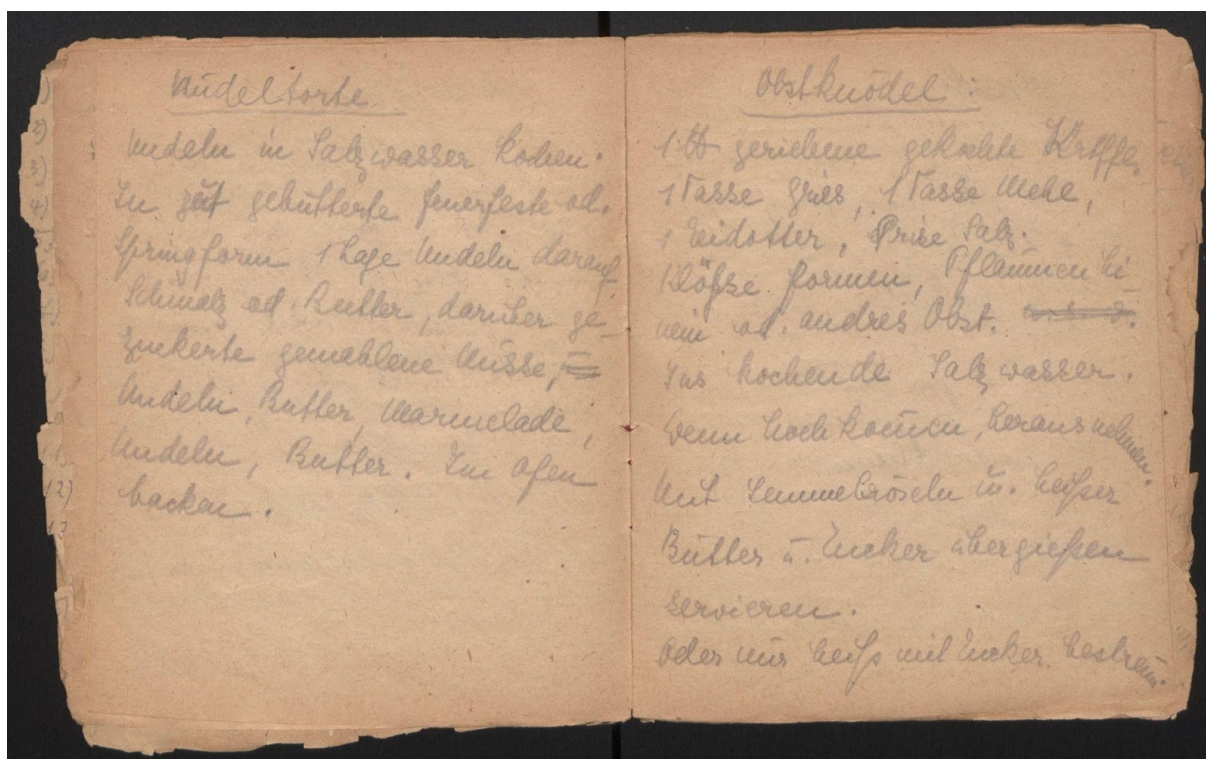 Nudeltorte
Nudeln in Salzwasser kochen.
In gut gebutterte feuerfeste od.
Springform 1 Lage Nudeln darauf
Schmalz od Butter, darüber ge-
zuckerte gemahlene Nüsse,
Nudeln, Butter, Marmelade,
Nudeln, Butter. Im Ofen
backen.
2)
3)
4)
12)
13
Obstknödel:
1 ℔ geriebene gekochte Krtffl.
1 Tasse Gries, 1 Tasse Mehl,
1 Eidotter, Prise Salz.
Klöße formen, Pflaumen hi-
nein od. andres Obst.
Ins kochende Salzwasser.
Wenn hochkom̅en, herausnehmen.
Mit Semmelbröseln u. heißer
Butter u. Zucker übergießen
servieren.
Oder nur heiß mit Zucker bestreun.